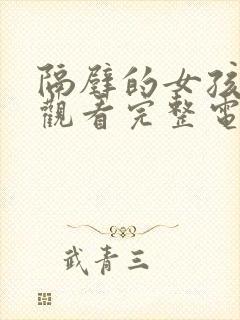 隔壁的女孩
觀看完整電
武青三